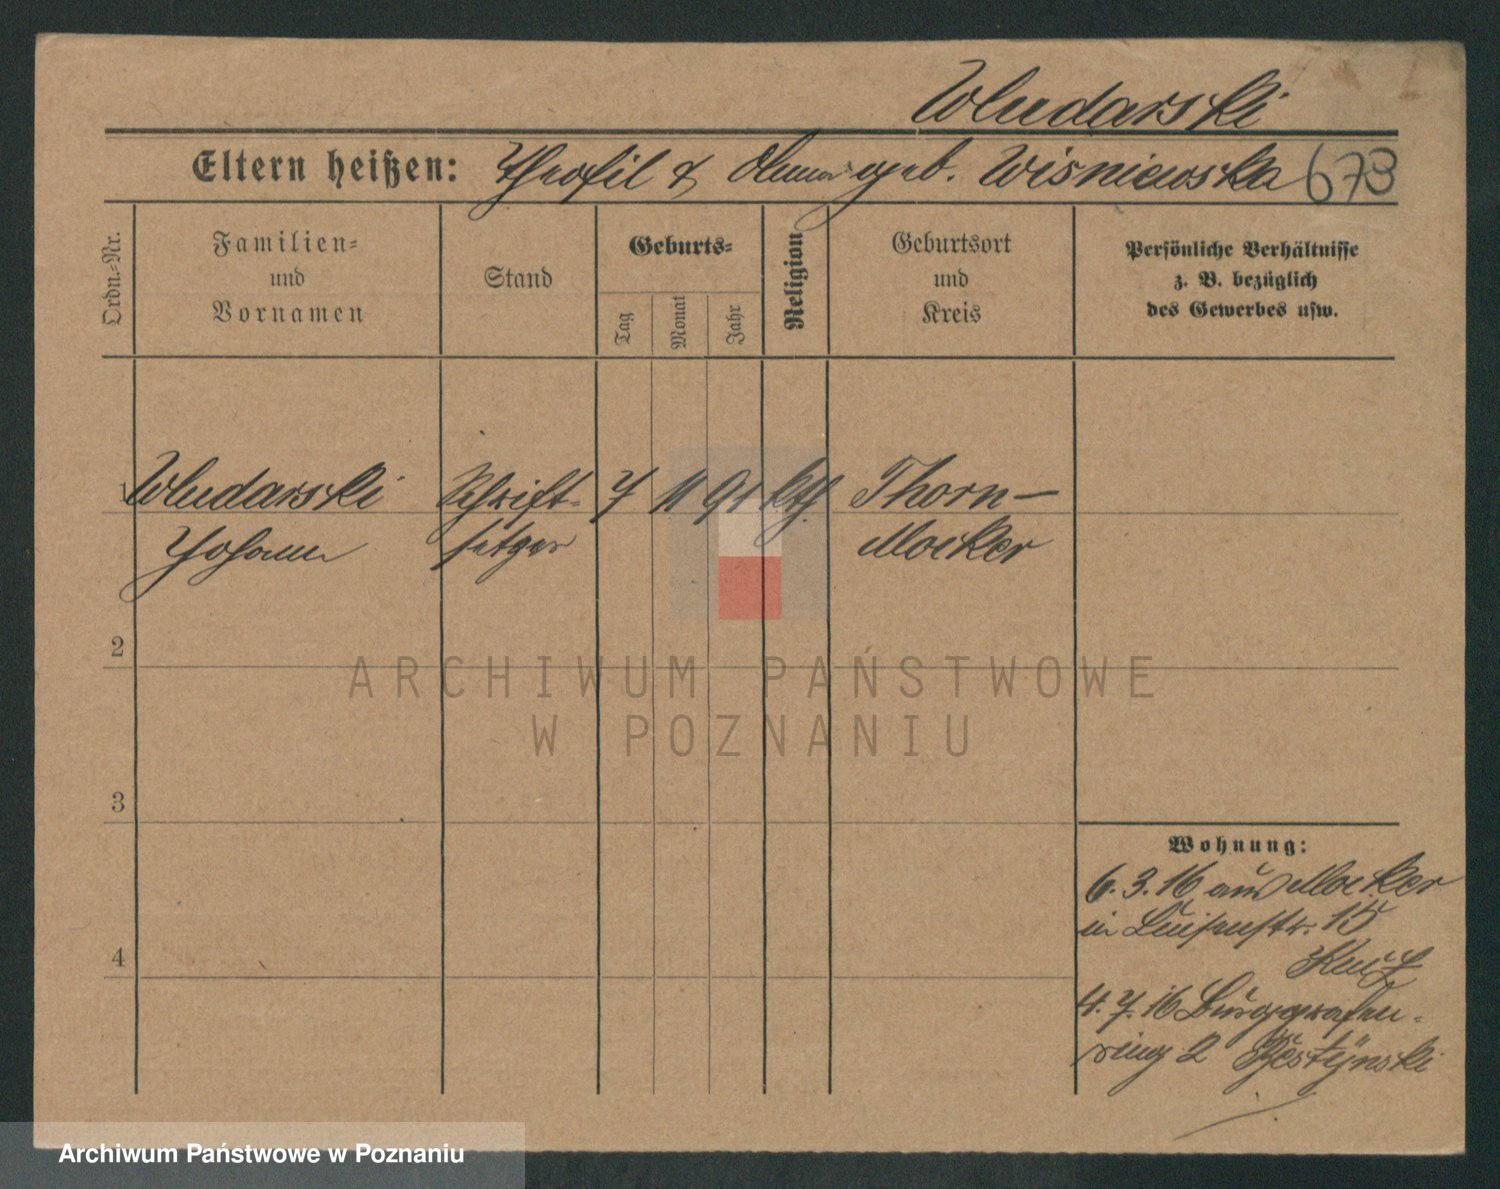 Wludarski
Eltern heißen: Theofil & geb. Wisniewska 673
Ordn.-Nr.
Familien-
und
Vornamen
Stand
Geburts-
Tag
Monat
Jahr
Religion
Geburtsort
und
Kreis
Persönliche Verhältnisse
z. B. bezüglich
des Gewerbes usw.
1 Wludarski Schrift- 7 11 91 kth. Thorn-
Johann setzer Mocker
2
3
4
Wohnung:
6.3.16 aus Mocker
in Luisenstr. 15
4.7.16 Burggrafen-
ring 2
ARCHIWUM PAŃSTWOWE
W POZNANIU
Archiwum Państwowe w Poznaniu